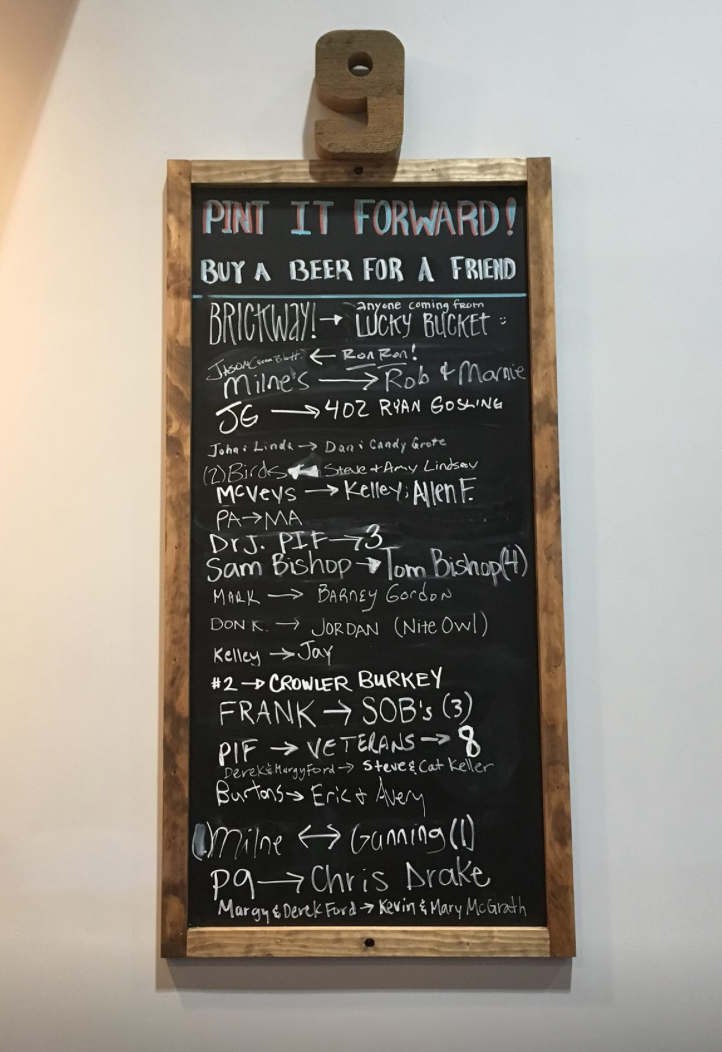 9
PINT IT FORWARD!
BUY A BEER FOR A FRIEND
BRICKWAY! → anyone coming from
LUCKY BUCKET :)
← RON RON!
Milne's → Rob & Marnie
JG → 402 RYAN GOSLING
John & Linda → Dan & Candy Grote
(2) Birds ← Steve + Amy Lindsay
McVeys → Kelley; Allen F.
PA → MA
Dr J. PIF → 3
Sam Bishop → Tom Bishop (4)
MARK → BARNEY GORDON
DON K. → JORDAN (Nite Owl)
Kelley → Jay
#2 → CROWLER BURKEY
FRANK → SOB's (3)
PIF → VETERANS → 8
Derek & Margy Ford → Steve & Cat Keller
Burtons → Eric + Avery
Milne ↔ Gunning (1)
P9 → Chris Drake
Margy & Derek Ford → Kevin & Mary McGrath